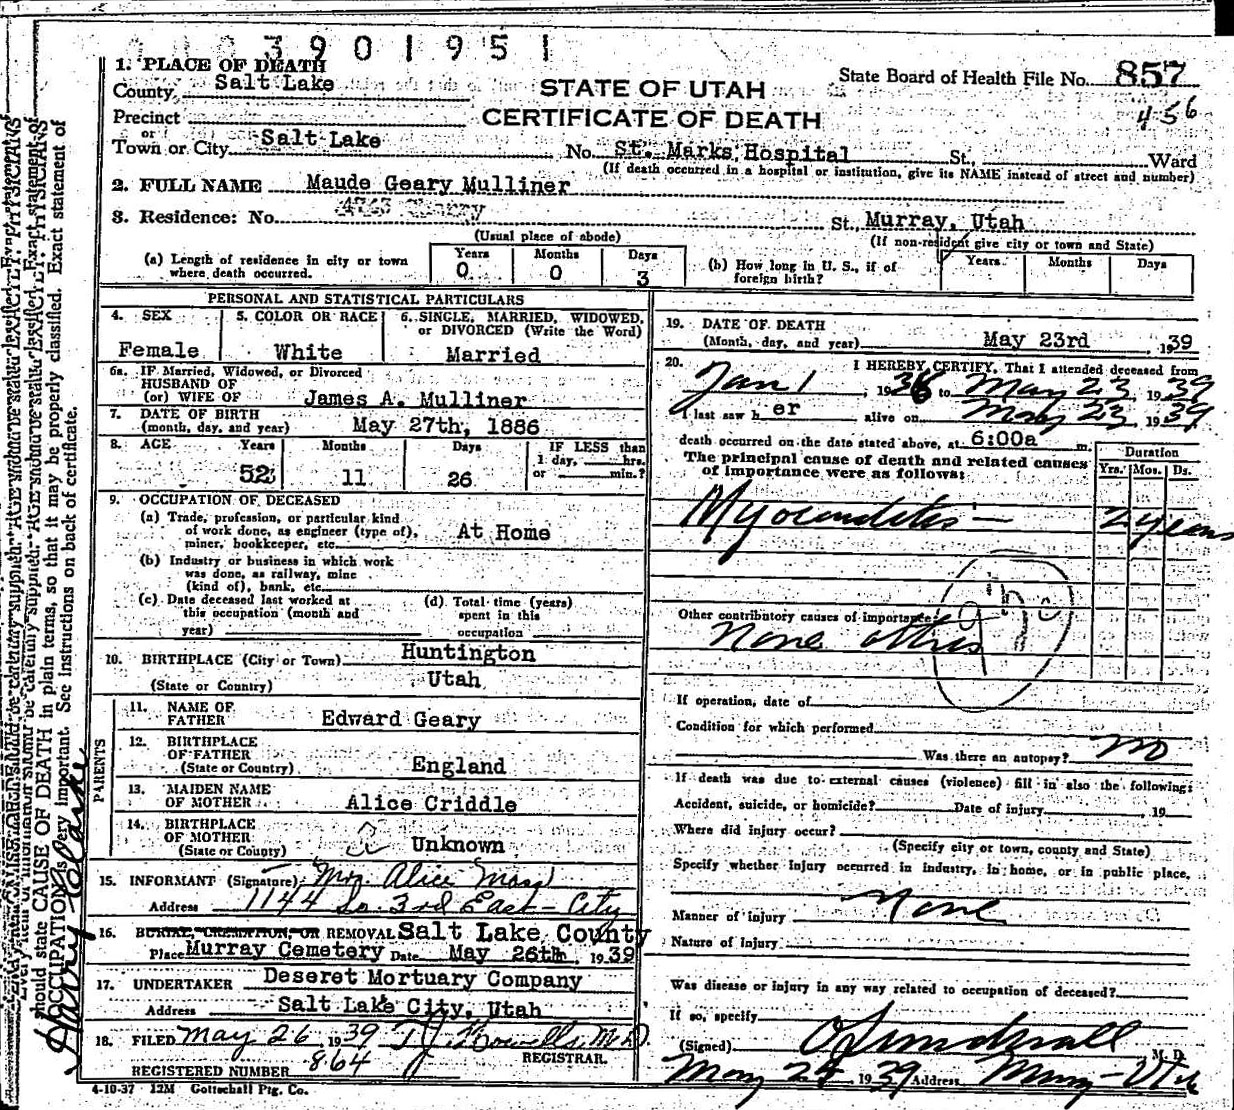 3901951
1. PLACE OF DEATH
County Salt Lake
Precinct
or
Town or City Salt Lake
STATE OF UTAH
CERTIFICATE OF DEATH
State Board of Health File No. 857
456
No. St. Marks Hospital St., Ward
(If death occurred in a hospital or institution, give its NAME instead of street and number)
2. FULL NAME Maude Geary Mulliner
3. Residence: No. St., Murray, Utah
(Usual place of abode) (If non-resident give city or town and State)
(a) Length of residence in city or town where death occurred. Years 0 Months 0 Days 3
(b) How long in U. S., if of foreign birth? Years Months Days
PERSONAL AND STATISTICAL PARTICULARS
4. SEX Female
5. COLOR OR RACE White
6. SINGLE, MARRIED, WIDOWED, or DIVORCED (Write the Word) Married
6a. IF Married, Widowed, or Divorced
HUSBAND OF
(or) WIFE OF James A. Mulliner
7. DATE OF BIRTH
(month, day, and year) May 27th, 1886
8. AGE Years 52 Months 11 Days 26
IF LESS than
1 day, hrs.
or min.?
9. OCCUPATION OF DECEASED
(a) Trade, profession, or particular kind
of work done, as engineer (type of),
miner, bookkeeper, etc. At Home
(b) Industry or business in which work
was done, as railway, mine
(kind of), bank, etc.
(c) Date deceased last worked at
this occupation (month and
year)
(d) Total time (years)
spent in this
occupation
10. BIRTHPLACE (City or Town) Huntington
(State or Country) Utah
PARENTS
11. NAME OF
FATHER Edward Geary
12. BIRTHPLACE
OF FATHER
(State or Country) England
13. MAIDEN NAME
OF MOTHER Alice Criddle
14. BIRTHPLACE
OF MOTHER
(State or County) Unknown
15. INFORMANT (Signature) Mrs. Alice
Address 1144 So. 3rd East - City
16. BURIAL, CREMATION, OR REMOVAL Salt Lake County
Place Murray Cemetery Date May 26th, 1939
17. UNDERTAKER Deseret Mortuary Company
Address Salt Lake City, Utah
18. FILED May 26 1939 T J Howells, M.D.
REGISTRAR.
REGISTERED NUMBER 864
4-10-37 12M Gottschall Ptg. Co.
19. DATE OF DEATH
(Month, day, and year) May 23rd, 1939
20. I HEREBY CERTIFY, That I attended deceased from
Jan 1, 1936 to May 23, 1939
I last saw her alive on May 23 1939
death occurred on the date stated above, at 6:00a m.
The principal cause of death and related causes
of importance were as follows:
Duration
Yrs. Mos. Ds.
Myocarditis - 2 years
Other contributory causes of importance:
None other
If operation, date of
Condition for which performed
Was there an autopsy? no
If death was due to external causes (violence) fill in also the following:
Accident, suicide, or homicide? Date of injury 19
Where did injury occur?
(Specify city or town, county and State)
Specify whether injury occurred in industry, in home, or in public place.
Manner of injury None
Nature of injury
Was disease or injury in any way related to occupation of deceased?
If so, specify
(Signed) M. D.
May 25 1939 Address Murray - Utah
should state CAUSE OF DEATH in plain terms, so that it may be properly classified. Exact statement of
OCCUPATION is very important. See instructions on back of certificate.
Harry Clarke